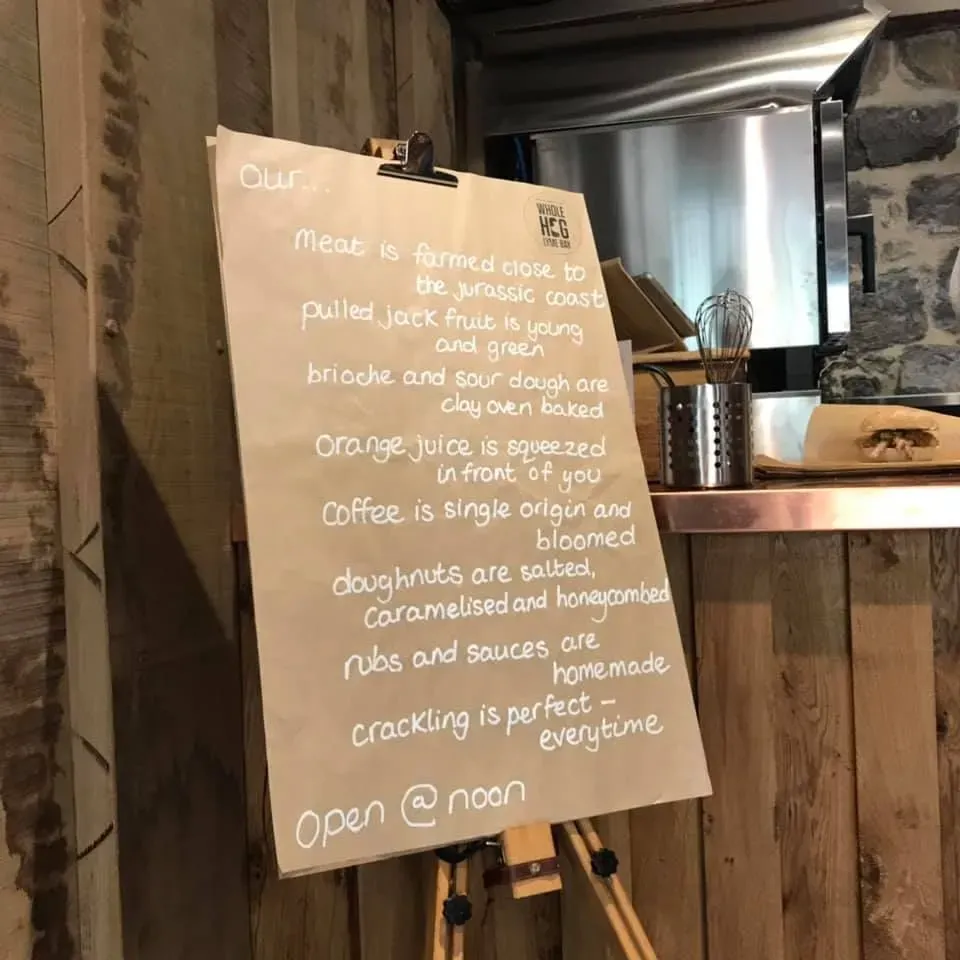 Our...
WHOLE
HOG
LYME BAY
Meat is farmed close to
the jurassic coast
pulled jack fruit is young
and green
brioche and sour dough are
clay oven baked
Orange juice is squeezed
in front of you
Coffee is single origin and
bloomed
doughnuts are salted,
caramelised and honeycombed
rubs and sauces are
homemade
crackling is perfect -
everytime
Open @ noon